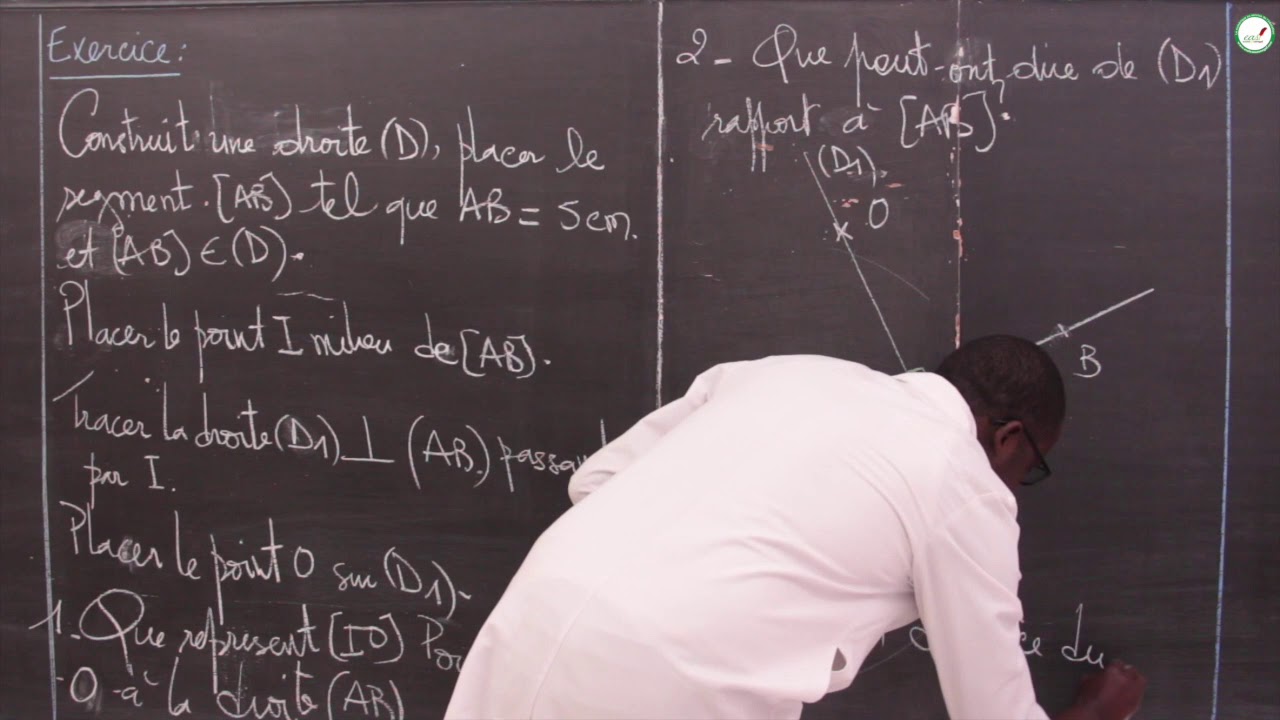 Exercice:
Construit une droite (D), placer le
segment [AB] tel que AB = 5cm.
et [AB] ∈ (D).
Placer le point I milieu de [AB].
Tracer la droite (D1) ⊥ (AB) passan
par I.
Placer le point O sur (D1).
1. Que représent [IO] Po
O à la droite (AB)
2 - Que peut-ont dire de (D1)
rapport à [AB]?
(D1).
O
B
du
eas